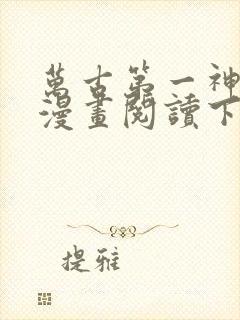 萬古第一神
漫畫閱讀下
提雅